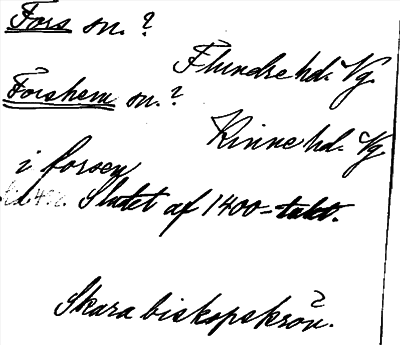 Fors sn.?
Flundre hd. Vg.
Forshem sn.?
Kinne hd. Vg.
i forsen
Slutet af 1400-talet.
Skara biskopskrön.